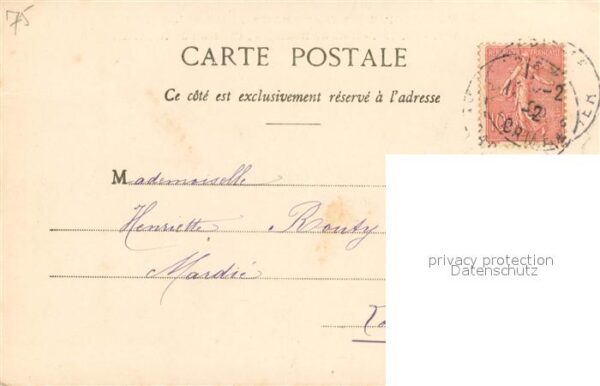 75
CARTE POSTALE
Ce côté est exclusivement réservé à l'adresse
Mademoiselle
Henriette Routy
Mardié
privacy protection
Datenschutz